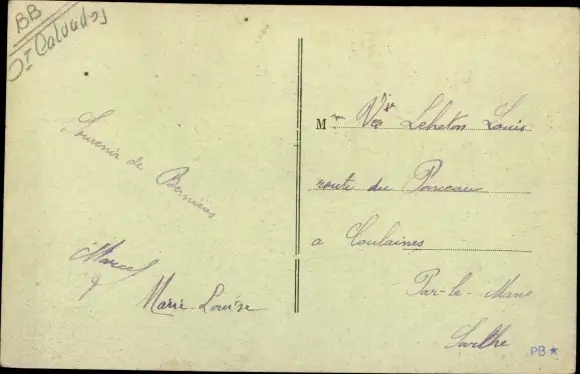 BB
Dt Calvados
Souvenir de Bernières
Marcel
Marie-Louise
Mme Vve Leheton Louis
route du Ponceau
a Coulaines
Par-le-Mans
Sarthe
PB ★